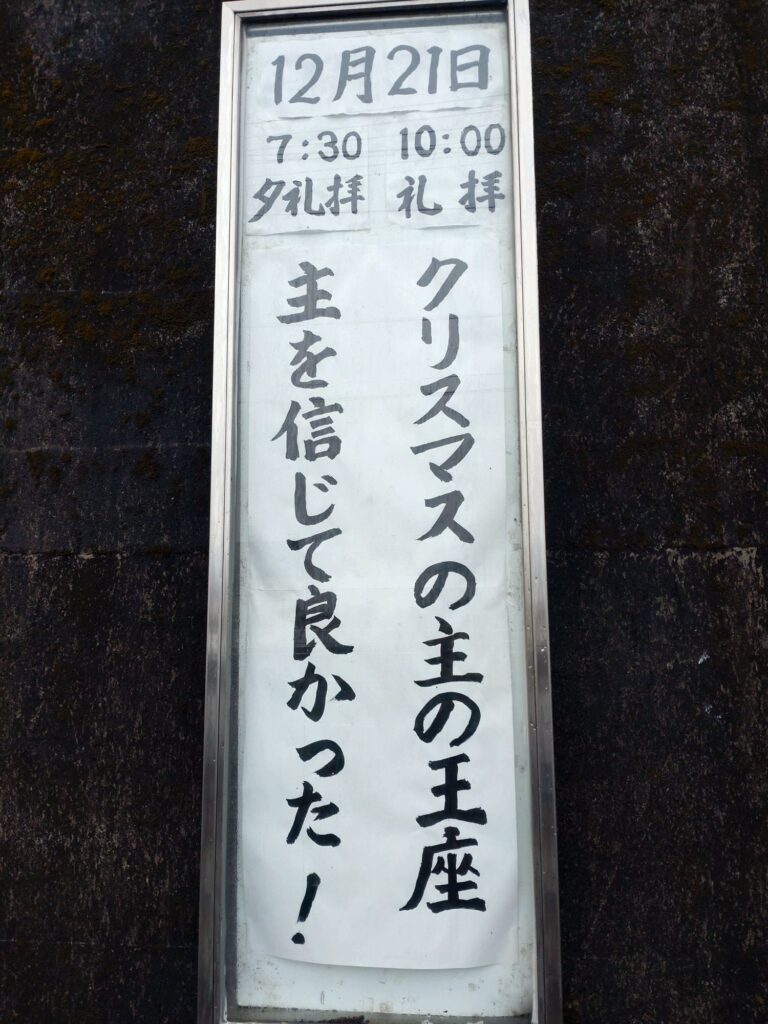 12月21日
10:00
礼拝
クリスマスの主の王座
7:30
夕礼拝
主を信じて良かった!